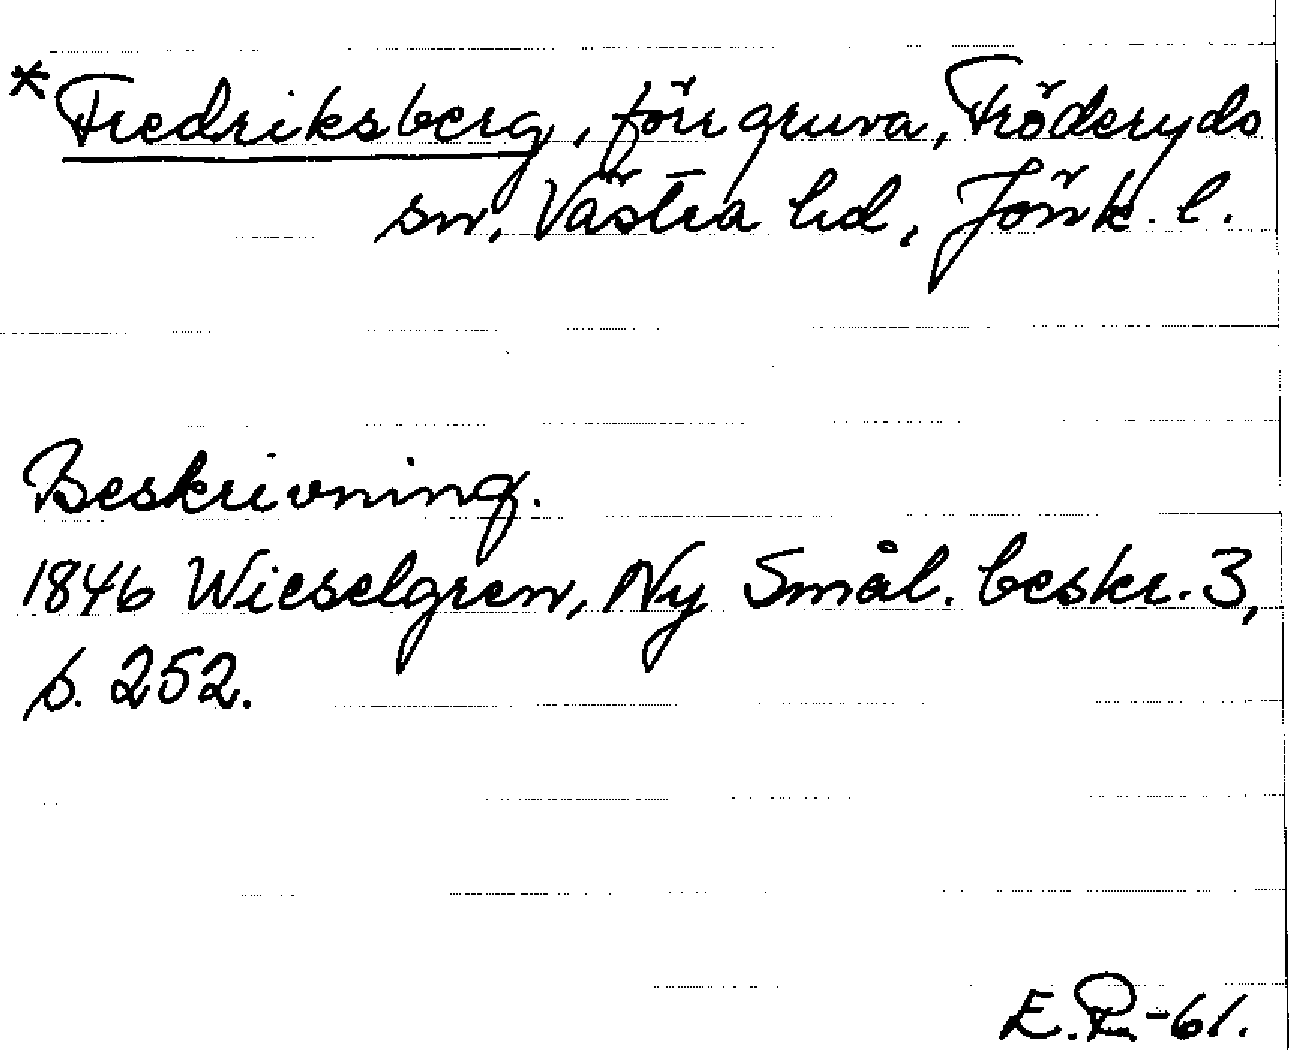 *Fredriksberg, förr gruva, Fröderyds
sn, Västra hd, Jönk. l.
Beskrivning.
1846 Wieselgren, Ny Smål. beskr. 3,
s. 252.
E.R-61.